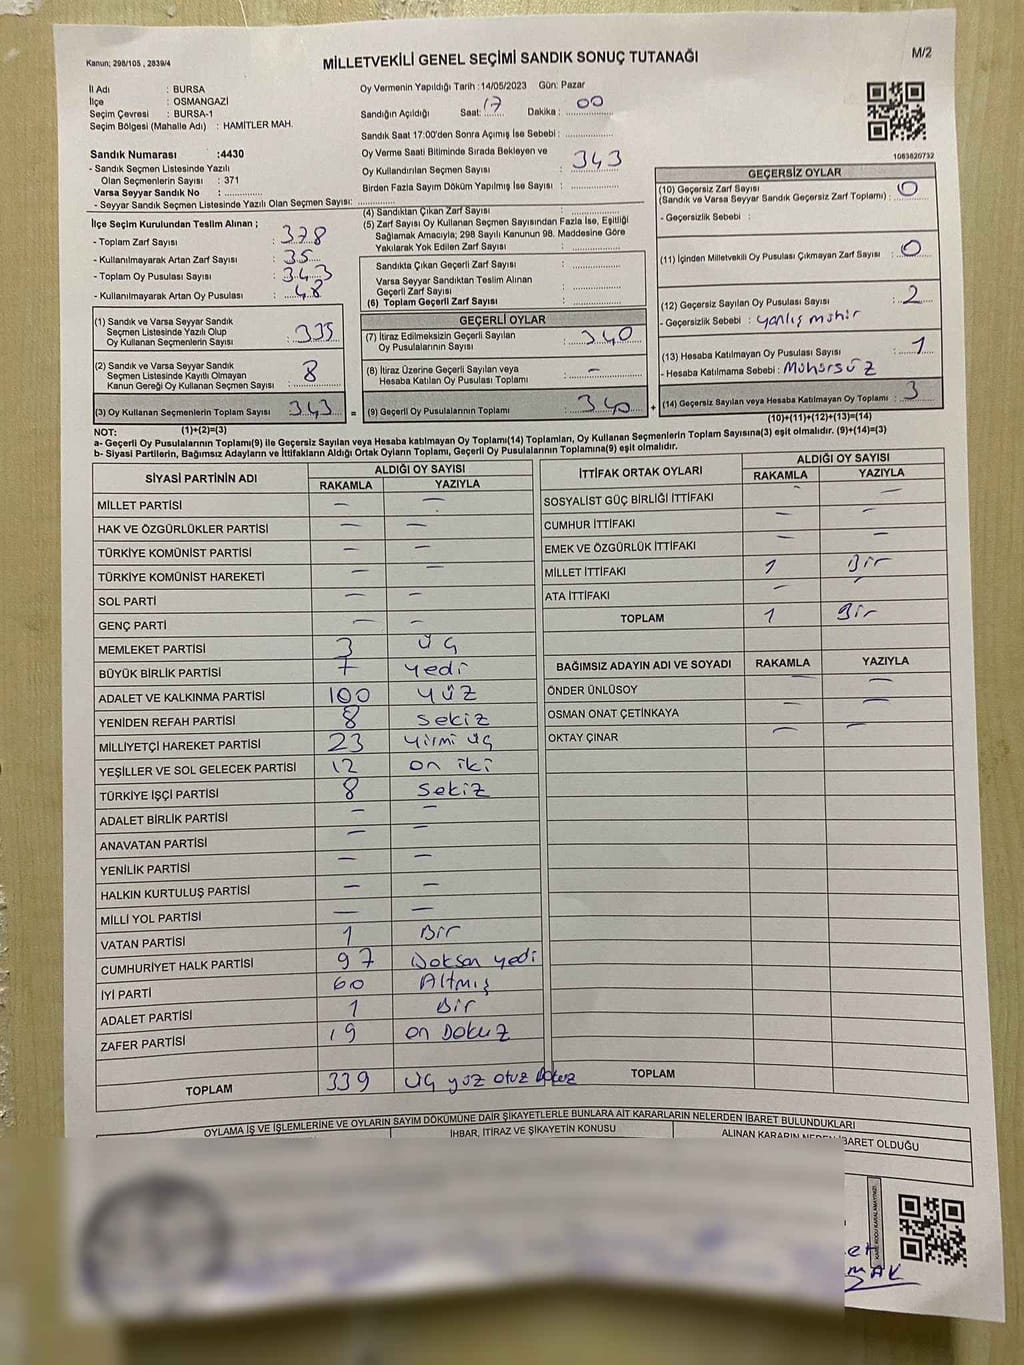 Kanun; 298/105 , 2839/4
MİLLETVEKİLİ GENEL SEÇİMİ SANDIK SONUÇ TUTANAĞI
M/2
İl Adı : BURSA
İlçe : OSMANGAZİ
Seçim Çevresi : BURSA-1
Seçim Bölgesi (Mahalle Adı) : HAMİTLER MAH.
Oy Vermenin Yapıldığı Tarih :14/05/2023 Gün: Pazar
Sandığın Açıldığı Saat: 17 Dakika : 00
Sandık Saat 17:00'den Sonra Açımış İse Sebebi :
Oy Verme Saati Bitiminde Sırada Bekleyen ve
Oy Kullandırılan Seçmen Sayısı : 343
Birden Fazla Sayım Döküm Yapılmış İse Sayısı :
1083820732
Sandık Numarası :4430
- Sandık Seçmen Listesinde Yazılı
Olan Seçmenlerin Sayısı : 371
Varsa Seyyar Sandık No :
- Seyyar Sandık Seçmen Listesinde Yazılı Olan Seçmen Sayısı:
İlçe Seçim Kurulundan Teslim Alınan ;
- Toplam Zarf Sayısı : 378
- Kullanılmayarak Artan Zarf Sayısı : 35
- Toplam Oy Pusulası Sayısı : 343
- Kullanılmayarak Artan Oy Pusulası : 48
(1) Sandık ve Varsa Seyyar Sandık
Seçmen Listesinde Yazılı Olup
Oy Kullanan Seçmenlerin Sayısı : 335
(2) Sandık ve Varsa Seyyar Sandık
Seçmen Listesinde Kayıtlı Olmayan
Kanun Gereği Oy Kullanan Seçmen Sayısı : 8
(3) Oy Kullanan Seçmenlerin Toplam Sayısı : 343 =
(4) Sandıktan Çıkan Zarf Sayısı :
(5) Zarf Sayısı Oy Kullanan Seçmen Sayısından Fazla İse, Eşitliği
Sağlamak Amacıyla; 298 Sayılı Kanunun 98. Maddesine Göre
Yakılarak Yok Edilen Zarf Sayısı :
Sandıkta Çıkan Geçerli Zarf Sayısı :
Varsa Seyyar Sandıktan Teslim Alınan
Geçerli Zarf Sayısı :
(6) Toplam Geçerli Zarf Sayısı :
GEÇERLİ OYLAR
(7) İtiraz Edilmeksizin Geçerli Sayılan
Oy Pusulalarının Sayısı : 340
(8) İtiraz Üzerine Geçerli Sayılan veya
Hesaba Katılan Oy Pusulası Toplamı : –
(9) Geçerli Oy Pusulalarının Toplamı : 340 +
GEÇERSİZ OYLAR
(10) Geçersiz Zarf Sayısı
(Sandık ve Varsa Seyyar Sandık Geçersiz Zarf Toplamı) : 0
- Geçersizlik Sebebi :
(11) İçinden Milletvekili Oy Pusulası Çıkmayan Zarf Sayısı : 0
(12) Geçersiz Sayılan Oy Pusulası Sayısı : 2
- Geçersizlik Sebebi : yanlış mühür
(13) Hesaba Katılmayan Oy Pusulası Sayısı : 1
- Hesaba Katılmama Sebebi : Mühürsüz
(14) Geçersiz Sayılan veya Hesaba Katılmayan Oy Toplamı : 3
NOT: (1)+(2)=(3)
(10)+(11)+(12)+(13)=(14)
a- Geçerli Oy Pusulalarının Toplamı(9) ile Geçersiz Sayılan veya Hesaba katılmayan Oy Toplamı(14) Toplamları, Oy Kullanan Seçmenlerin Toplam Sayısına(3) eşit olmalıdır. (9)+(14)=(3)
b- Siyasi Partilerin, Bağımsız Adayların ve İttifakların Aldığı Ortak Oyların Toplamı, Geçerli Oy Pusulalarının Toplamına(9) eşit olmalıdır.
SİYASİ PARTİNİN ADI ALDIĞI OY SAYISI
RAKAMLA YAZIYLA
MİLLET PARTİSİ – –
HAK VE ÖZGÜRLÜKLER PARTİSİ – –
TÜRKİYE KOMÜNİST PARTİSİ – –
TÜRKİYE KOMÜNİST HAREKETİ – –
SOL PARTİ – –
GENÇ PARTİ – –
MEMLEKET PARTİSİ 3 üç
BÜYÜK BİRLİK PARTİSİ 7 yedi
ADALET VE KALKINMA PARTİSİ 100 yüz
YENİDEN REFAH PARTİSİ 8 sekiz
MİLLİYETÇİ HAREKET PARTİSİ 23 yirmi üç
YEŞİLLER VE SOL GELECEK PARTİSİ 12 on iki
TÜRKİYE İŞÇİ PARTİSİ 8 sekiz
ADALET BİRLİK PARTİSİ – –
ANAVATAN PARTİSİ – –
YENİLİK PARTİSİ – –
HALKIN KURTULUŞ PARTİSİ – –
MİLLİ YOL PARTİSİ – –
VATAN PARTİSİ 1 Bir
CUMHURİYET HALK PARTİSİ 97 Doksan yedi
İYİ PARTİ 60 Altmış
ADALET PARTİSİ 1 Bir
ZAFER PARTİSİ 19 on Dokuz
TOPLAM 339 üç yüz otuz Dokuz
İTTİFAK ORTAK OYLARI ALDIĞI OY SAYISI
RAKAMLA YAZIYLA
SOSYALİST GÜÇ BİRLİĞİ İTTİFAKI – –
CUMHUR İTTİFAKI – –
EMEK VE ÖZGÜRLÜK İTTİFAKI – –
MİLLET İTTİFAKI 1 Bir
ATA İTTİFAKI – –
TOPLAM 1 Bir
BAĞIMSIZ ADAYIN ADI VE SOYADI RAKAMLA YAZIYLA
ÖNDER ÜNLÜSOY – –
OSMAN ONAT ÇETİNKAYA – –
OKTAY ÇINAR – –
TOPLAM
OYLAMA İŞ VE İŞLEMLERİNE VE OYLARIN SAYIM DÖKÜMÜNE DAİR ŞİKAYETLERLE BUNLARA AİT KARARLARIN NELERDEN İBARET BULUNDUKLARI
İHBAR, İTİRAZ VE ŞİKAYETİN KONUSU
ALINAN KARARIN NEDEN İBARET OLDUĞU